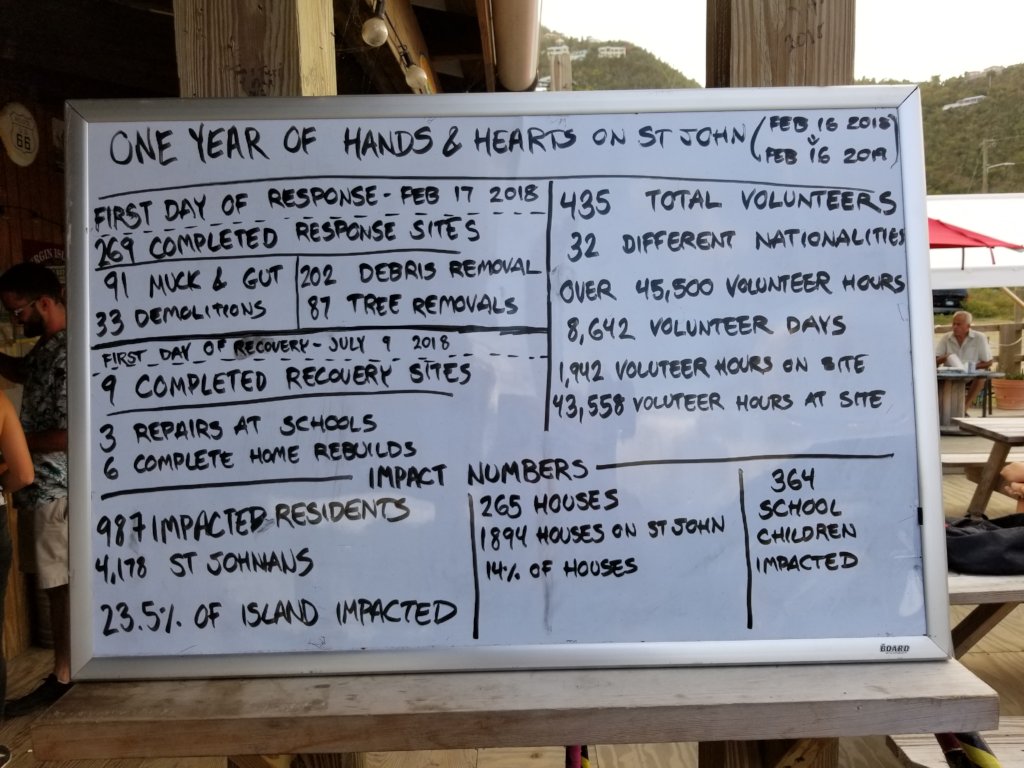 ONE YEAR OF HANDS & HEARTS ON ST JOHN (FEB 16 2018
FEB 16 2019)
FIRST DAY OF RESPONSE - FEB 17 2018
269 COMPLETED RESPONSE SITES
91 MUCK & GUT
33 DEMOLITIONS
202 DEBRIS REMOVAL
87 TREE REMOVALS
FIRST DAY OF RECOVERY - JULY 9 2018
9 COMPLETED RECOVERY SITES
3 REPAIRS AT SCHOOLS
6 COMPLETE HOME REBUILDS
435 TOTAL VOLUNTEERS
32 DIFFERENT NATIONALITIES
OVER 45,500 VOLUNTEER HOURS
8,642 VOLUNTEER DAYS
1,942 VOLUTEER HOURS ON SITE
43,558 VOLUTEER HOURS AT SITE
IMPACT NUMBERS
987 IMPACTED RESIDENTS
4,178 ST JOHNANS
23.5% OF ISLAND IMPACTED
265 HOUSES
1894 HOUSES ON ST JOHN
14% OF HOUSES
364
SCHOOL
CHILDREN
IMPACTED
BOARD
66